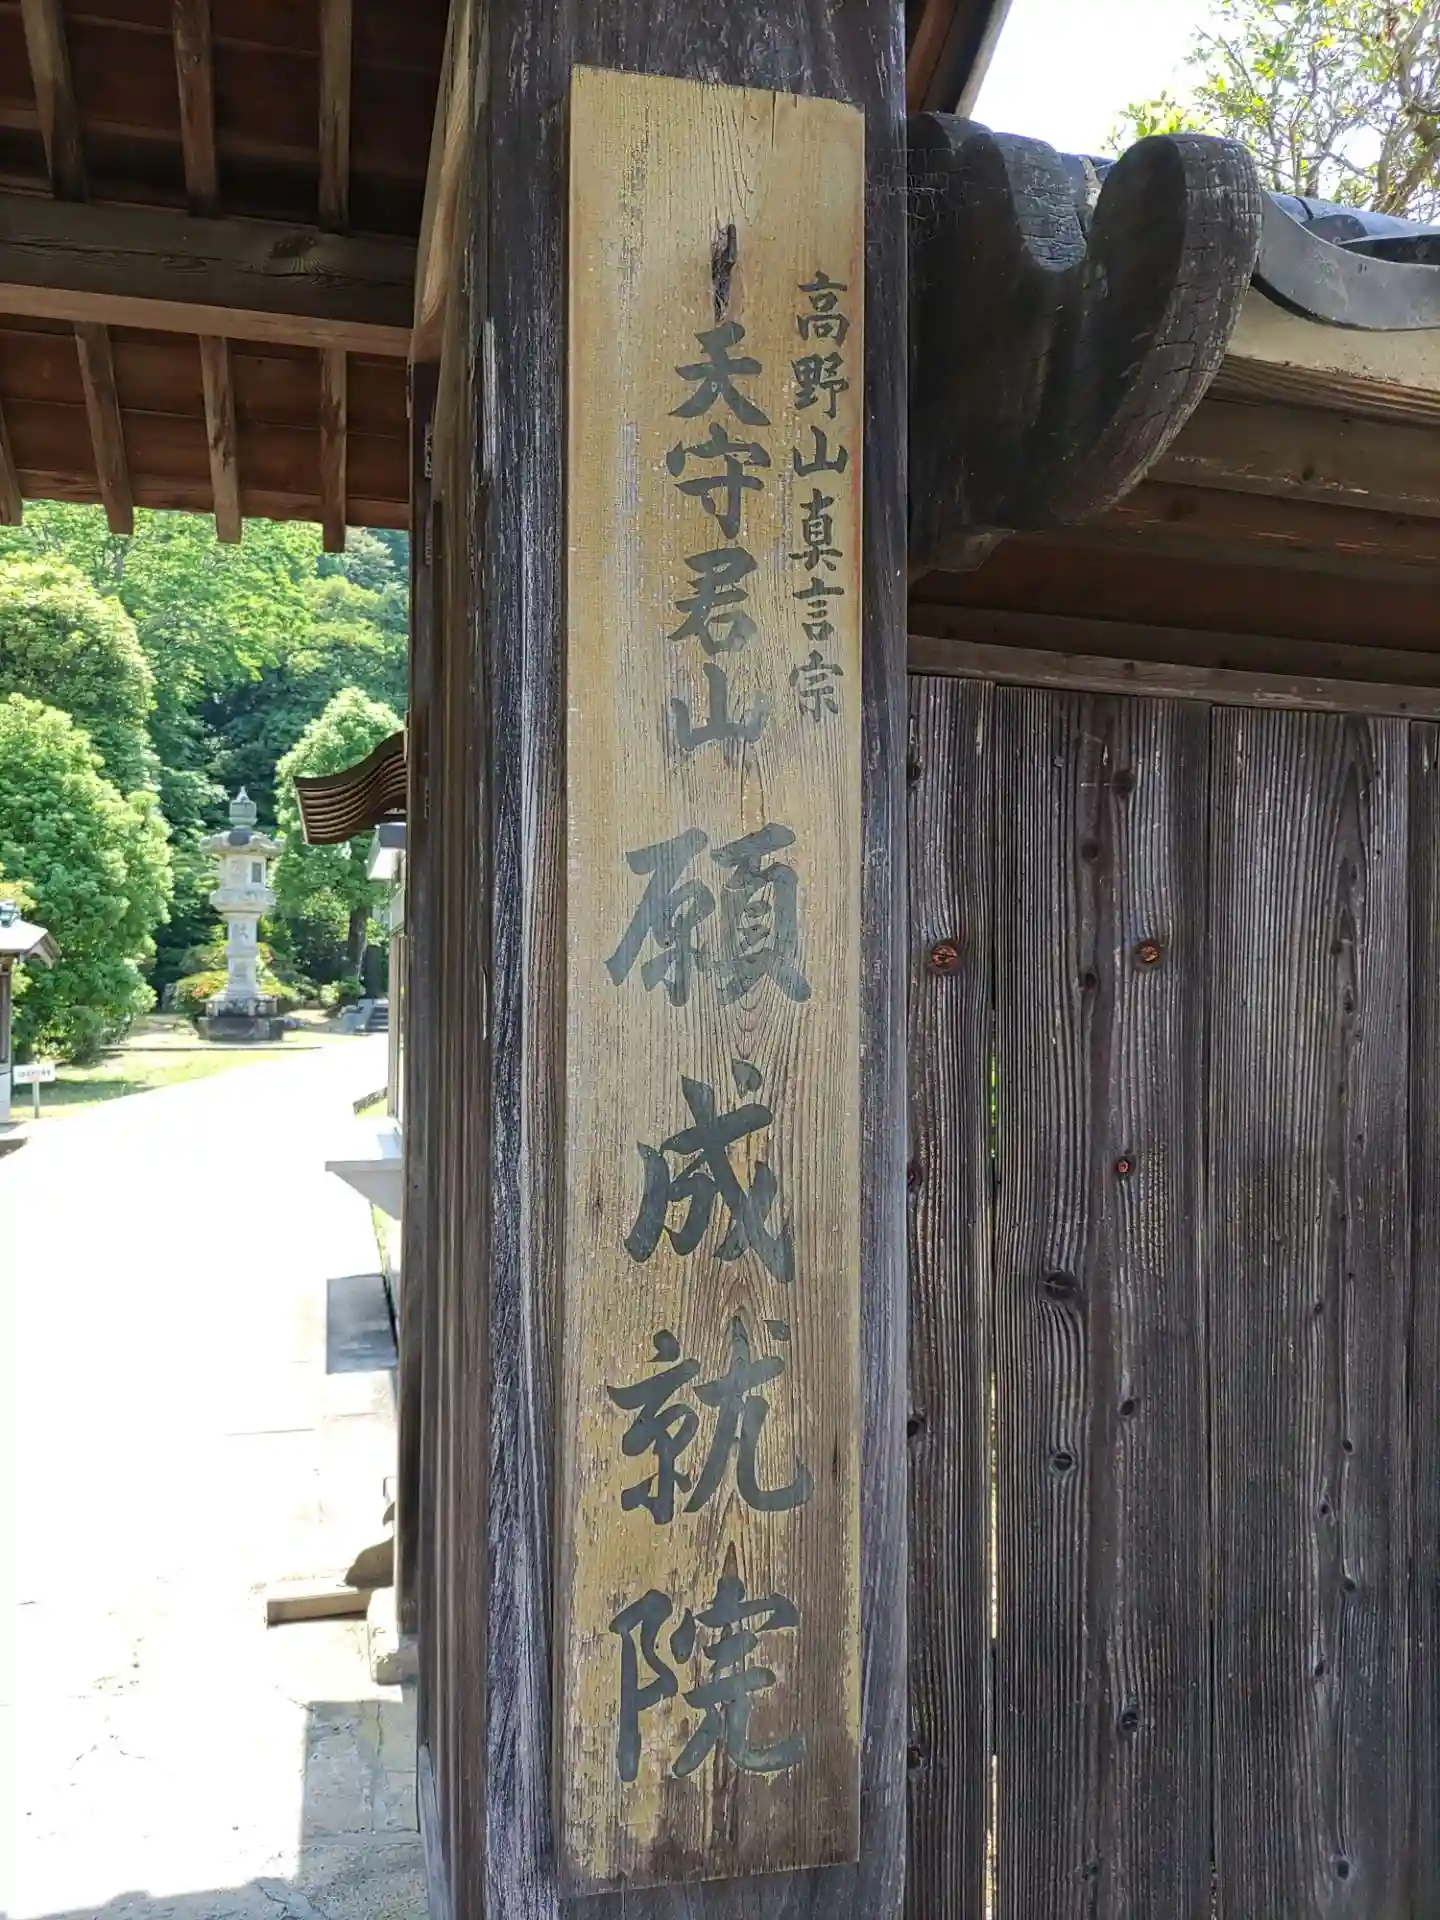 高野山真言宗
天守君山願成就院